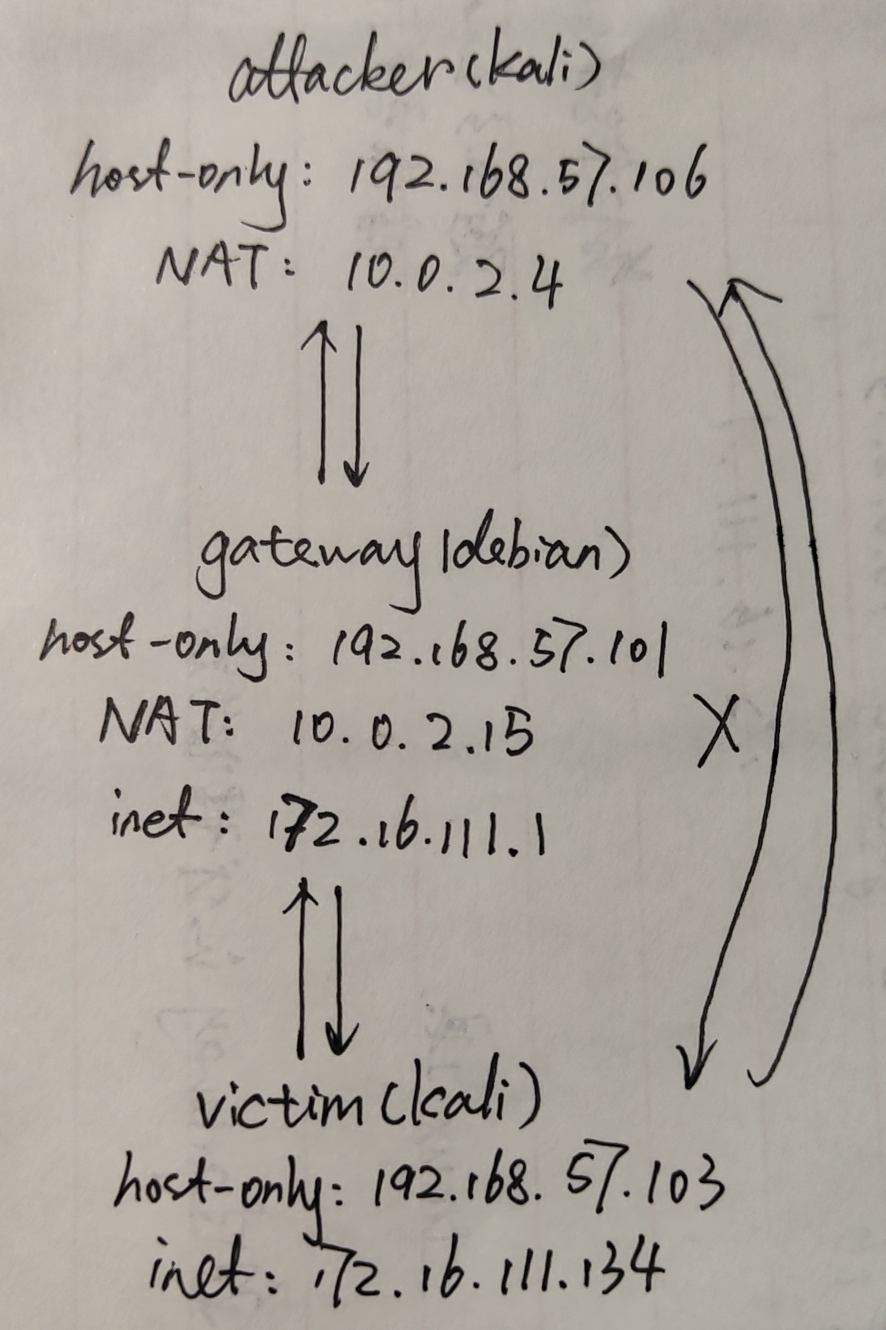 attacker(kali)
host-only: 192.168.57.106
NAT: 10.0.2.4
gateway(debian)
host-only: 192.168.57.101
NAT: 10.0.2.15
X
inet: 172.16.111.1
victim(kali)
host-only: 192.168.57.103
inet: 172.16.111.134